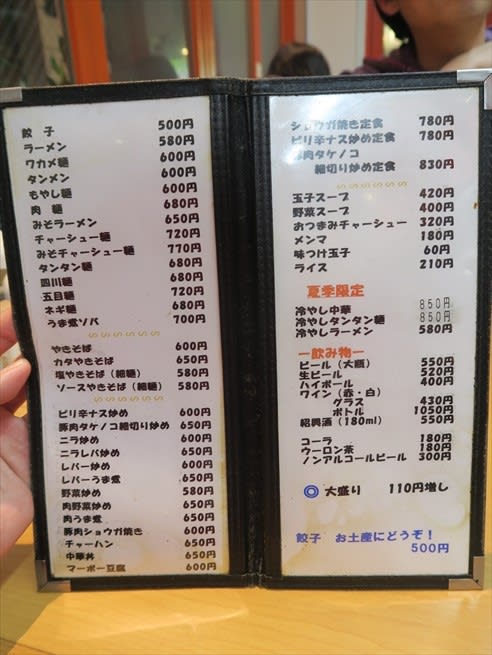 餃子 500円
ラーメン 580円
ワカメ麺 600円
タンメン 600円
もやし麺 600円
肉麺 680円
みそラーメン 650円
チャーシュー麺 720円
みそチャーシュー麺 770円
タンタン麺 680円
四川麺 680円
五目麺 720円
ネギ麺 680円
うま煮ソバ 700円
やきそば 600円
カタやきそば 650円
塩やきそば（細麺） 580円
ソースやきそば（細麺） 580円
ピリ辛ナス炒め 600円
豚肉タケノコ細切り炒め 650円
ニラ炒め 600円
ニラレバ炒め 650円
レバー炒め 600円
レバーうま煮 650円
野菜炒め 580円
肉野菜炒め 650円
肉うま煮 650円
豚肉ショウガ焼き 600円
チャーハン 650円
中華丼 650円
マーボー豆腐 600円
ショウガ焼き定食 780円
ピリ辛ナス炒め定食 780円
豚肉タケノコ
細切り炒め定食 830円
玉子スープ 420円
野菜スープ 400円
おつまみチャーシュー 320円
メンマ 180円
味つけ玉子 60円
ライス 210円
夏季限定
冷やし中華 850円
冷やしタンタン麺 850円
冷やしラーメン 580円
―飲み物―
ビール（大瓶） 550円
生ビール 520円
ハイボール 400円
ワイン（赤・白）
グラス 430円
ボトル 1050円
紹興酒（180ml） 550円
コーラ 180円
ウーロン茶 180円
ノンアルコールビール 300円
◎ 大盛り 110円増し
餃子 お土産にどうぞ！
500円